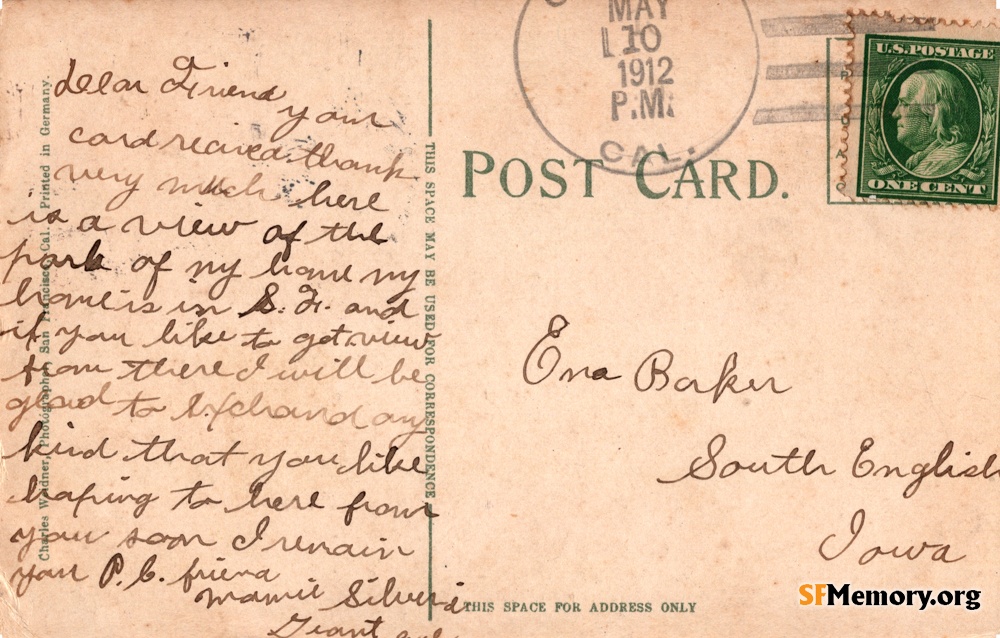 dear Friend
your
card recived thank
very much here
is a view of the
park of my home my
home is in S. F. and
if you like to got view
from there I will be
glad to exchand any
kind that you like
hoping to here from
you soon I remain
your P. C. friend
mamie Silveria
Grant
Charles Weidner, Photographer, San Francisco, Cal. Printed in Germany.
THIS SPACE MAY BE USED FOR CORRESPONDENCE
MAY
10
1912
P.M.
CAL.
U.S. POSTAGE
ONE CENT
POST CARD.
Ena Barker
South English
Iowa
THIS SPACE FOR ADDRESS ONLY
SFMemory.org